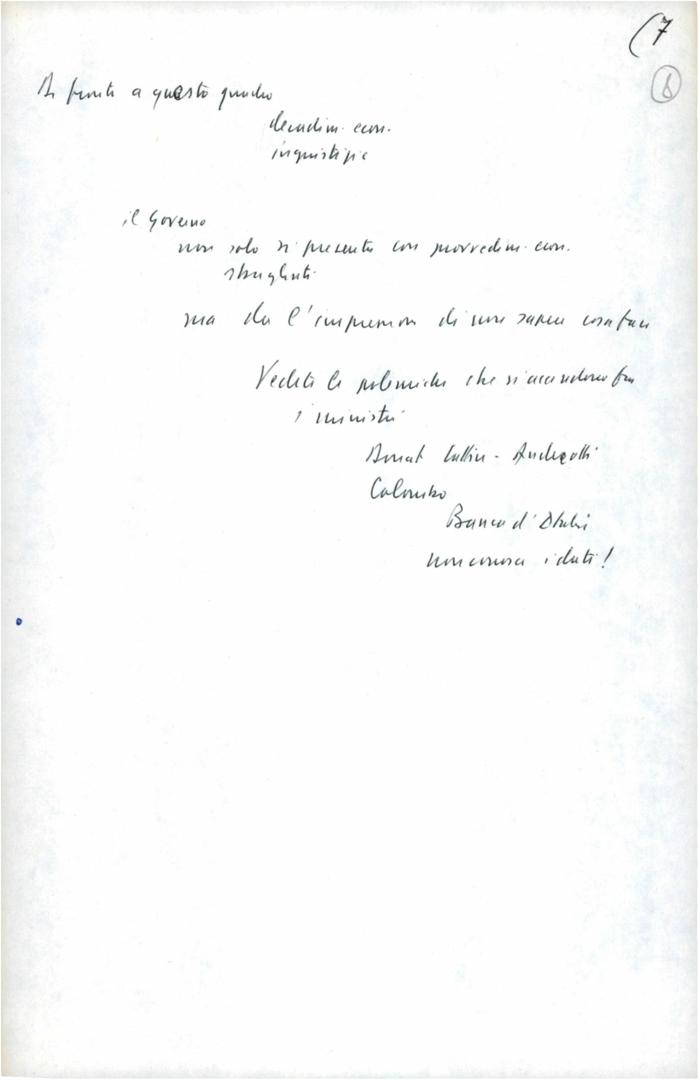 7
6
Di fronte a questo quadro
decadim. econ.
ingiustizie
il Governo
non solo si presenta con provvedim. econ.
sbagliati
ma da l'impressione di non sapere cosa fare
Vedete le polemiche che si accendono fra
i ministri
Donat Cattin - Andreotti
Colombo
Banca d'Italia
non conosce i dati!